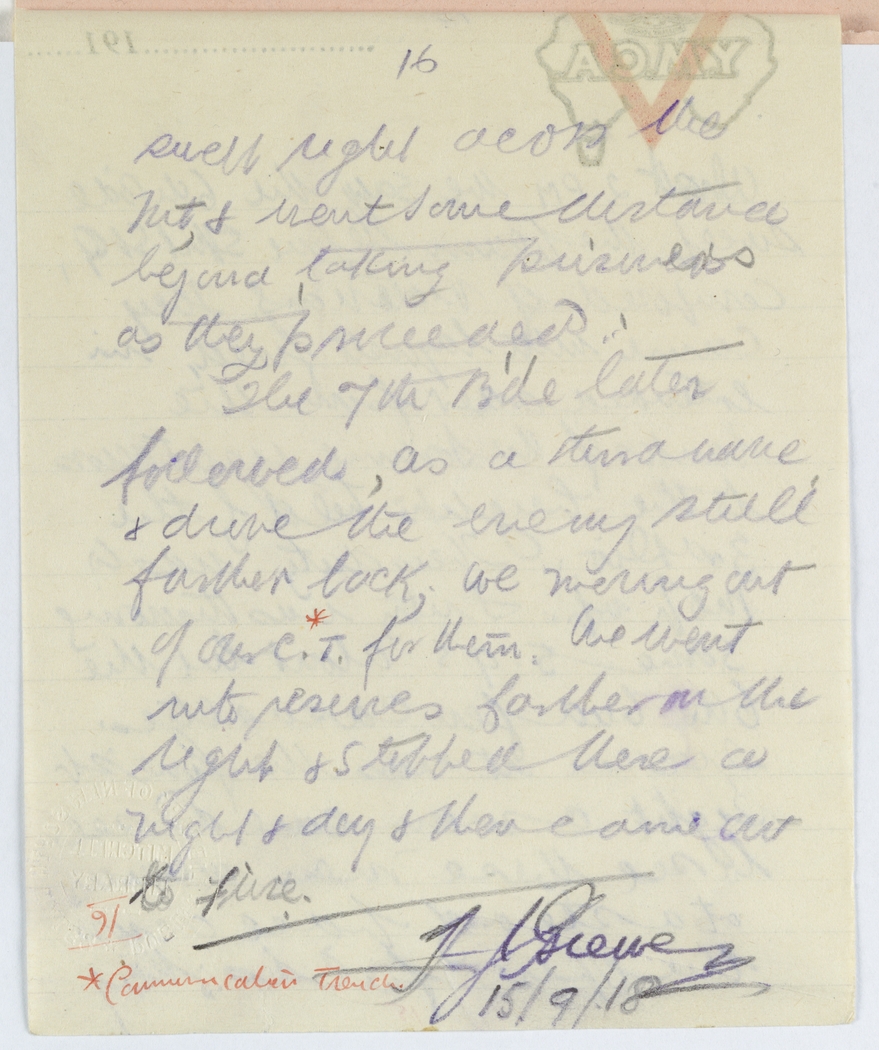 16
swept right across the
Mt, & went some distance
beyond, taking prisoners
as they proceeded.
The 7th Bde later
followed, as a third wave
& drove the enemy still
farther back, we moving out
of our C.T.* for them. We went
into reserves farther on the
right & stopped there a
night & day & then came out
to
91
15/9/18
* Communication Trench.